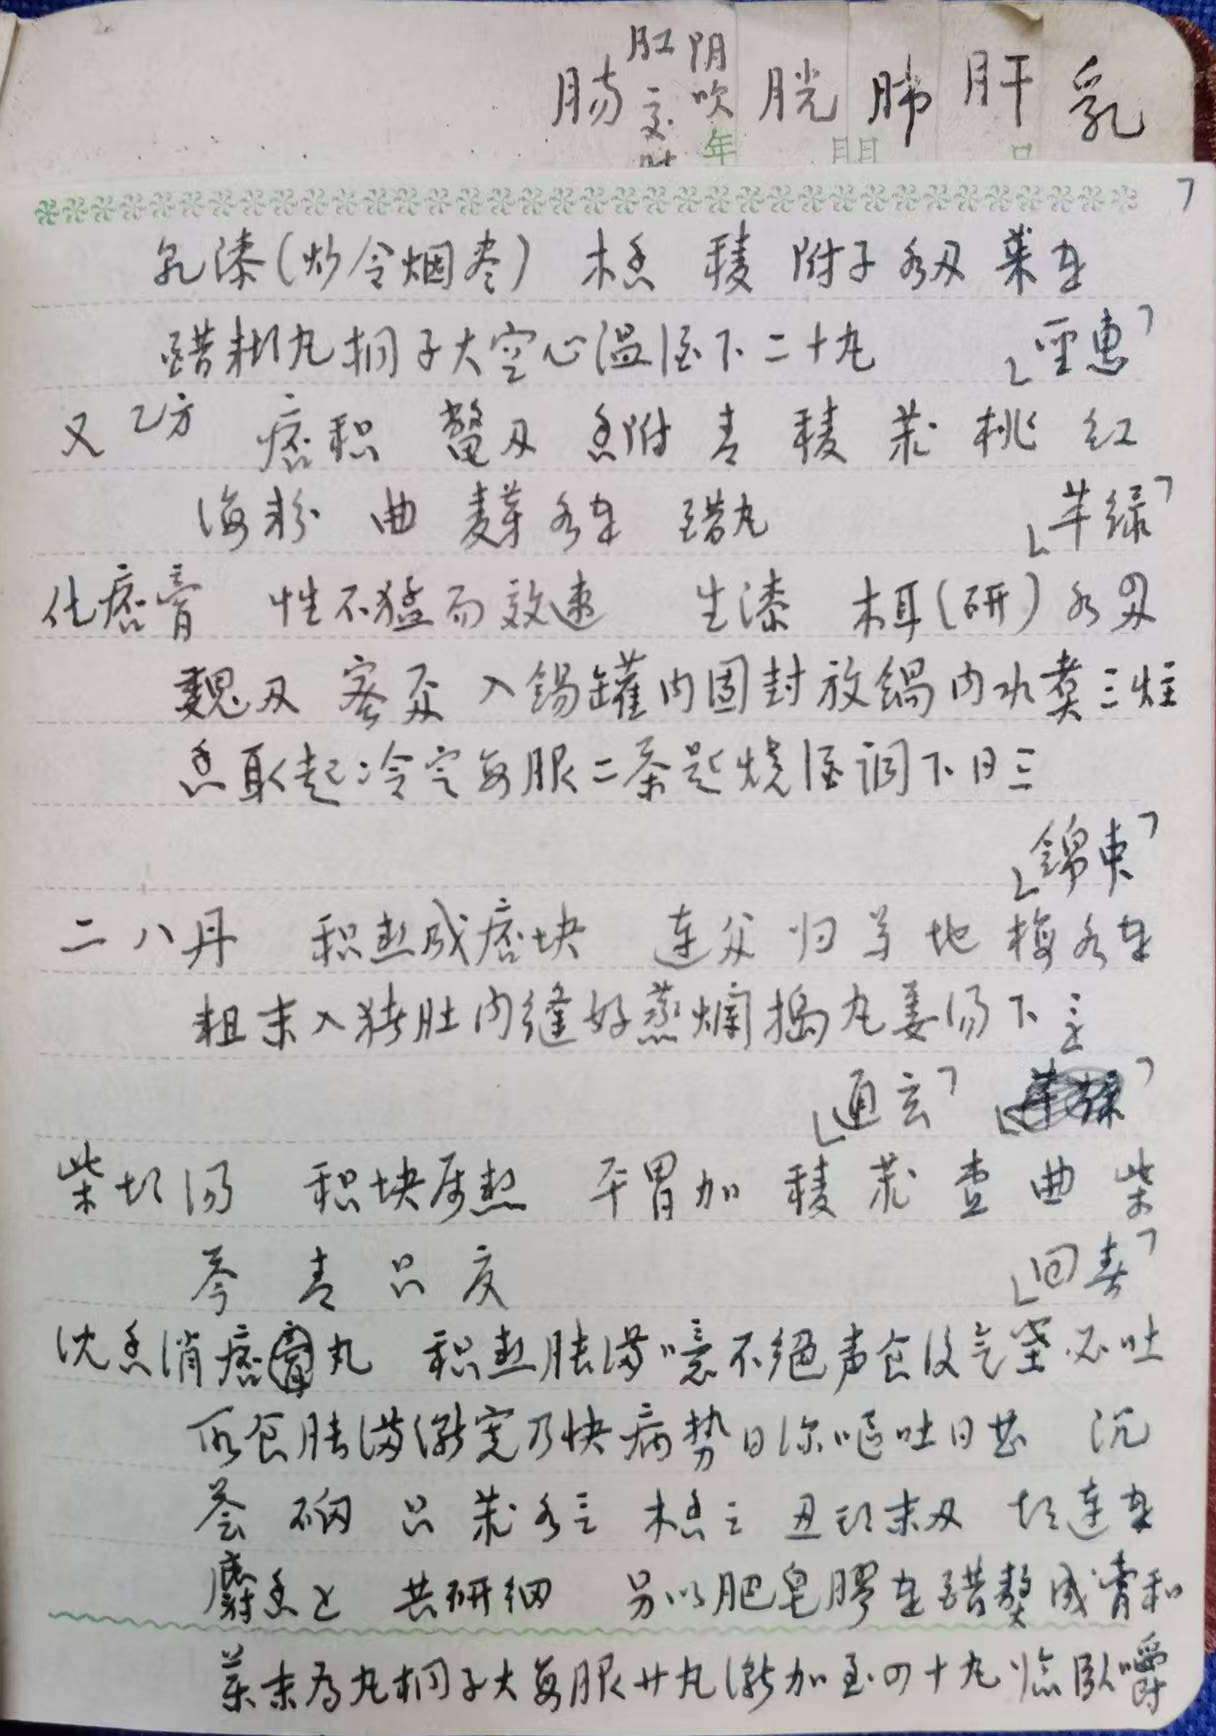 肠 肛 阴吹 胱 肺 肝 乳
交
年 月日
7
乳漆(炒令烟尽) 木香 棱 附子各刃 药
醋糊丸桐子大空心温酒下二十丸 「圣惠」
又 乙方 痞积 鳖刃 香附 青 棱 莪 桃 红
海粉 曲 麦芽各 醋丸 「苹绿」
化痞膏 性不猛而效速 生漆 木耳(研)各四刃
刃 蜜 入锡罐内固封放锅内水煮三炷
香取起冷定每服二茶匙烧酒调下日三
「锦束」
二八丹 积热成痞块 连 归 地 梅各
粗末入猪肚内缝好蒸烂捣丸姜汤下
「通玄」
柴胡汤 积块属热 平胃加 棱 莪 查 曲 柴
芩 青 只 「回春」
沈香消痞丸 积热胀满噫不绝声食后气坚必吐
所食胀满渐宽乃快病势日深呕吐日甚 沉
木香 丑头末刃 胡连
麝香 共研细 另以肥皂胶 醋熬成膏和
药末为丸桐子大每服廿丸渐加至四十丸临卧嚼